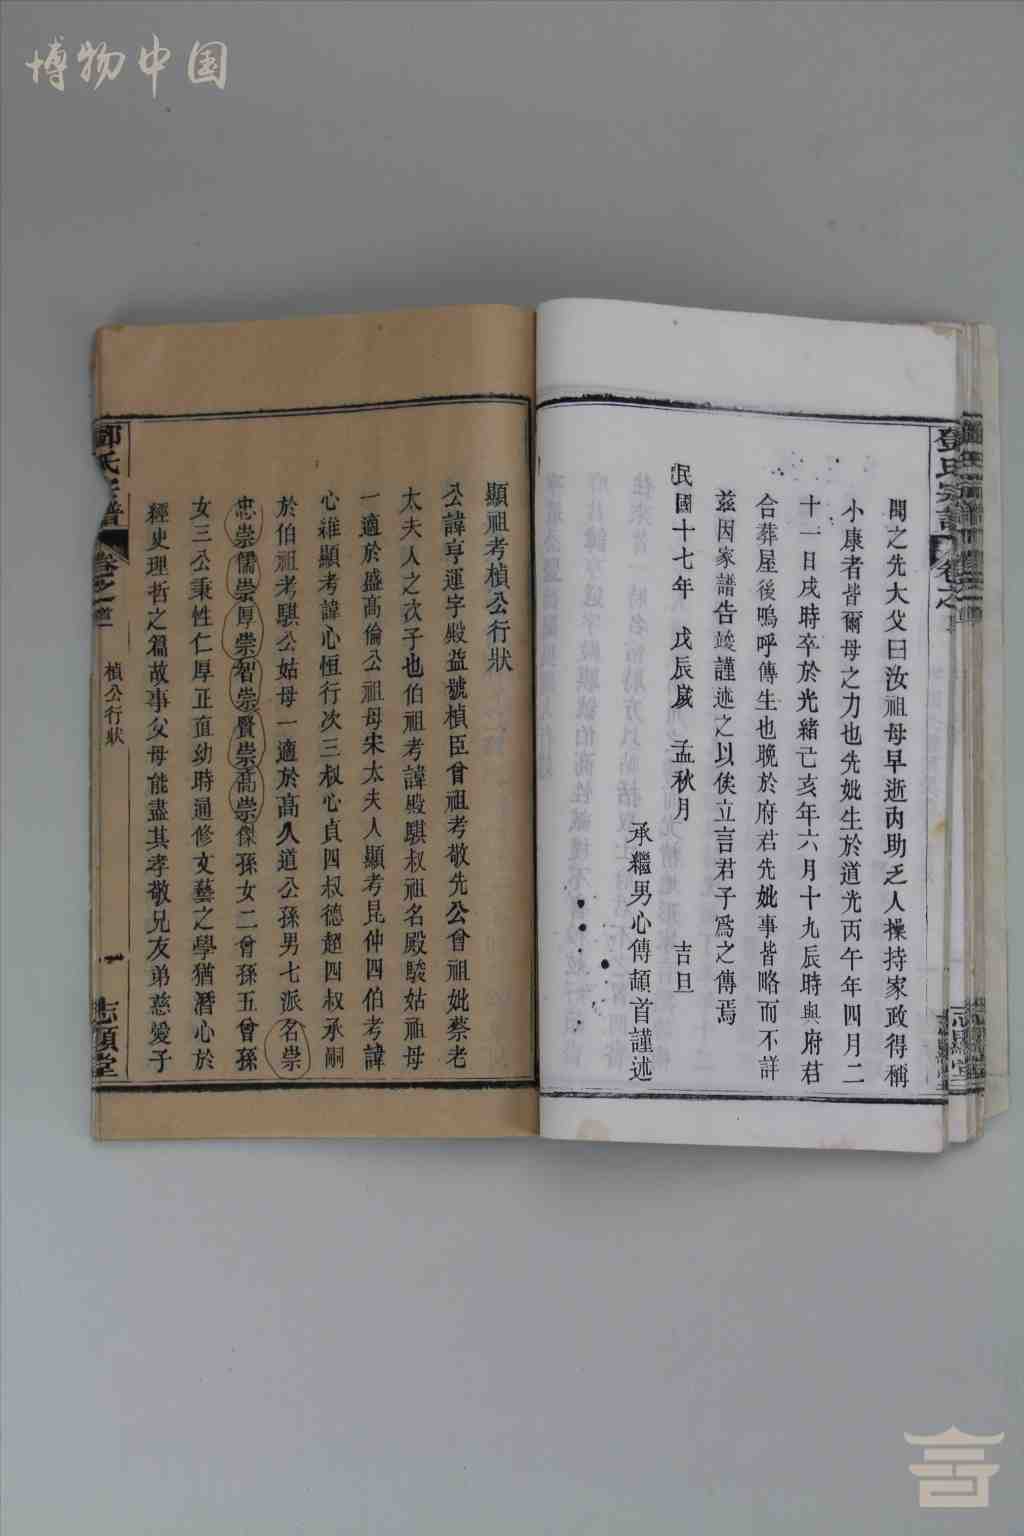 博物中国
聞之先大父曰汝祖母早逝內助乏人操持家政得稱
小康者皆爾母之力也先妣生於道光丙午年四月二
十一日戌時卒於光緒己亥年六月十九辰時與府君
合葬屋後嗚呼傳生也晚於府君先妣事皆略而不詳
茲因家譜告竣謹述之以俟立言君子爲之傳焉
民國十七年 戊辰歲 孟秋月 吉旦
承繼男心傳頓首謹述
顯祖考楨公行狀
公諱亨運字殿益號楨臣曾祖考敬先公曾祖妣蔡老
太夫人之次子也伯祖考諱殿騏叔祖名殿駿姑祖母
一適於盛高倫公祖母宋太夫人顯考昆仲四伯考諱
心維顯考諱心恒行次三叔心貞四叔德超四叔承嗣
於伯祖考騏公姑母一適於高久道公孫男七派名崇
忠崇儒崇厚崇智崇賢崇高崇傑孫女二曾孫五曾孫
女三公秉性仁厚正直幼時通修文藝之學猶潛心於
經史理哲之篇故事父母能盡其孝敬兄友弟慈愛子
鄧氏宗譜
卷之首
楨公行狀
鄧氏宗譜
卷之